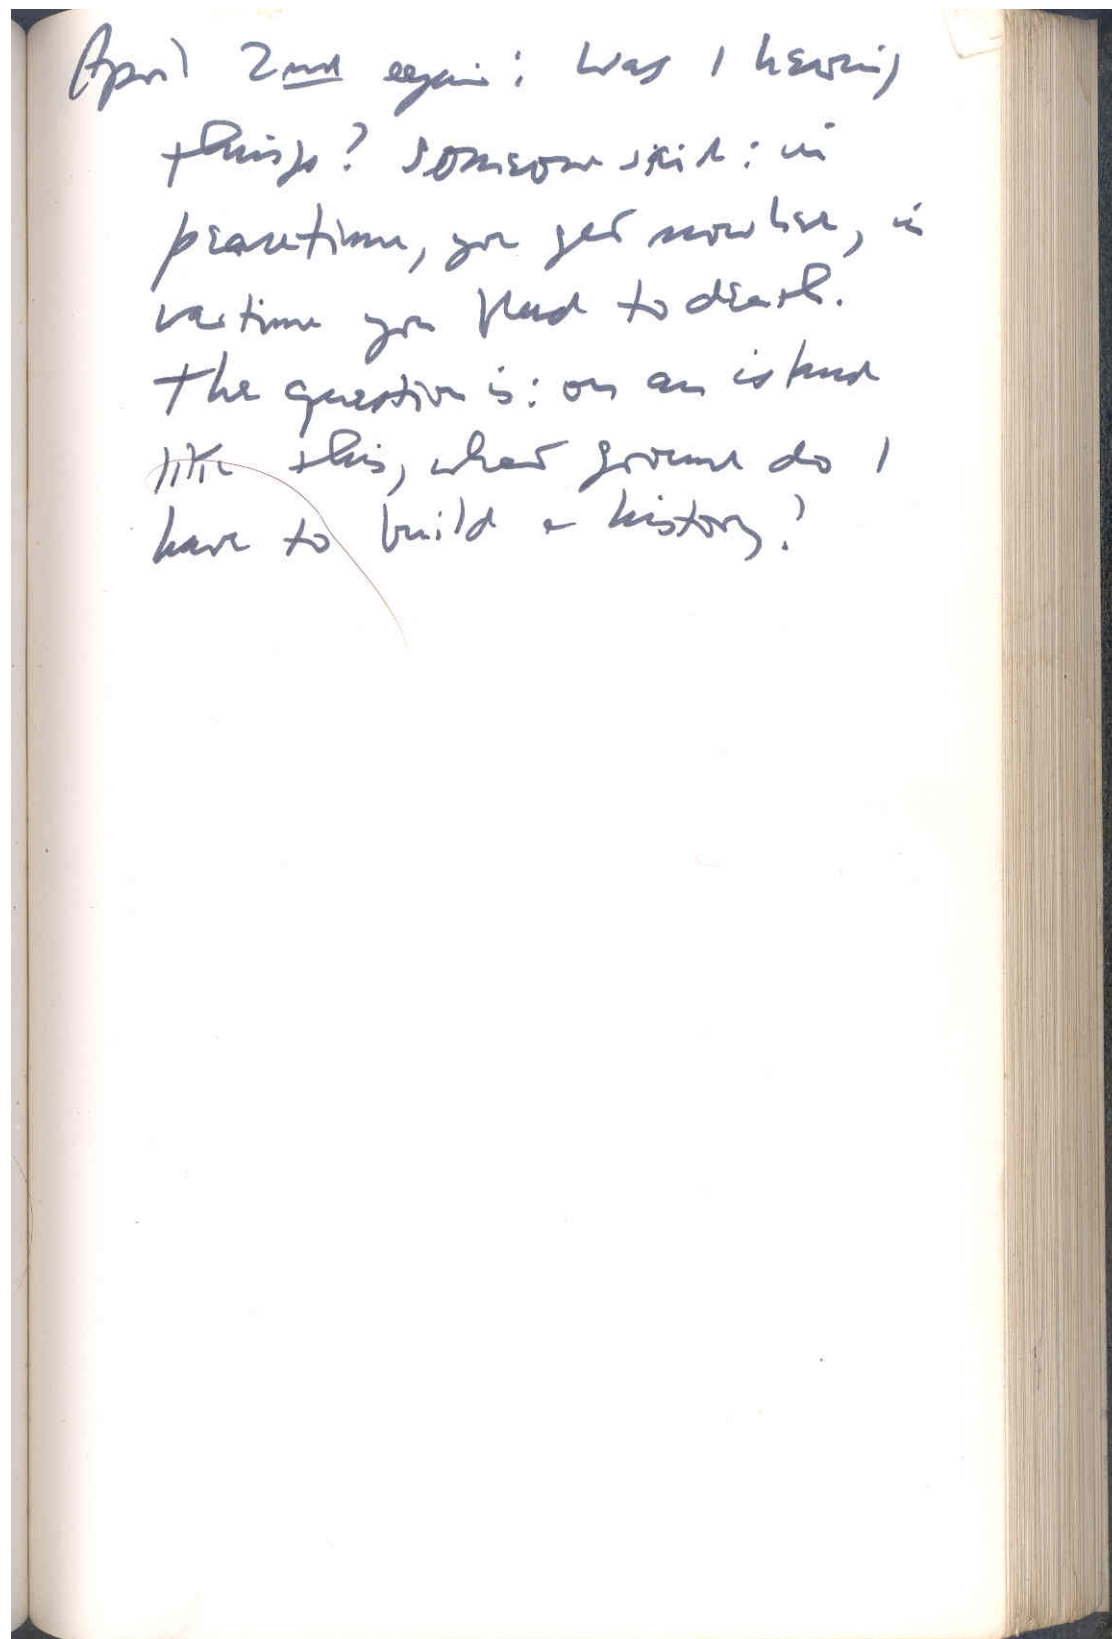 April 2nd again: Was I hearing
things? Someone said: in
peacetime, you get nowhere, in
wartime you bleed to death.
The question is: on an island
like this, what ground do I
have to build a history?